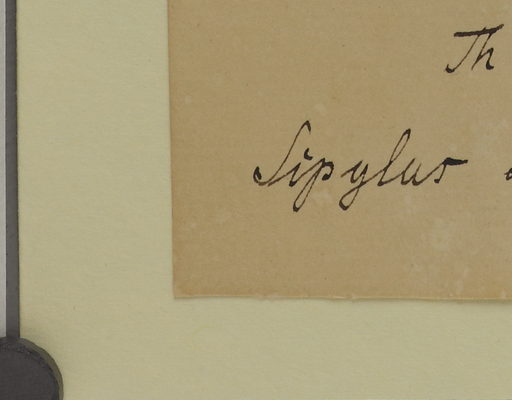 Th
Sipylus